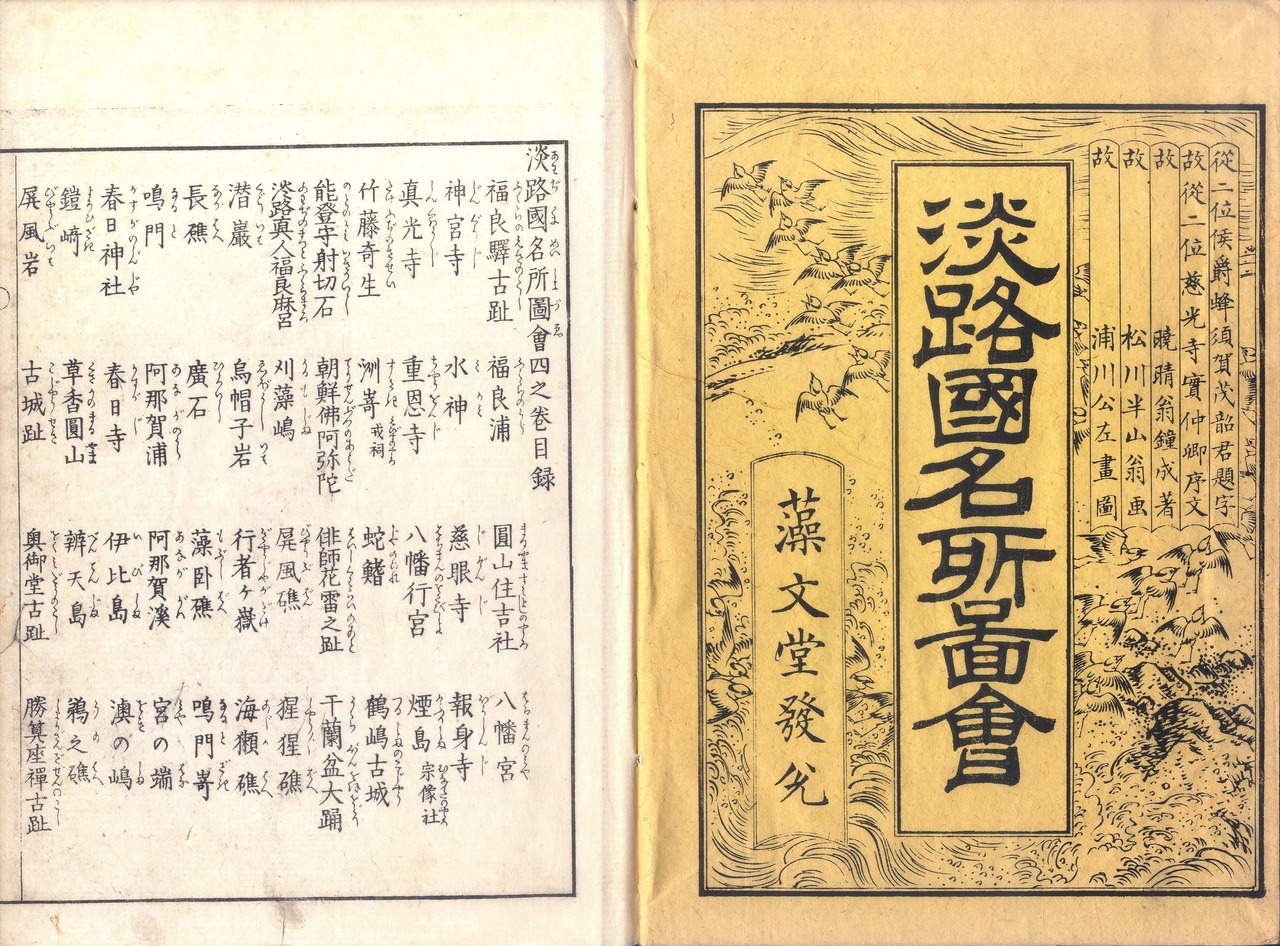 從二位侯爵蜂須賀茂韶君題字
故從二位慈光寺實仲卿序文
故 曉晴翁鐘成著
故 松川半山翁画
故 浦川公左畫圖
淡路國名所圖會
藻文堂發兌
淡路國名所圖會四之卷目録
福良驛古趾 福良浦 圓山住吉社 八幡宮
神宮寺 水神 慈眼寺 報身寺
真光寺 重恩寺 八幡行宮 煙島 宗像社
竹藤奇生 洲嵜 戎祠 蛇鰭 鶴嶋古城
能登守射切石 朝鮮佛阿弥陀 俳師花雷之趾 干蘭盆大踊
淡路真人福良麻呂 刈藻嶋 屏風礁 猩猩礁
潜巖 烏帽子岩 行者ヶ嶽 海獺礁
長礁 廣石 藻卧礁 鳴門嵜
鳴門 阿那賀浦 阿那賀溪 宮の端
春日神社 春日寺 伊比島 澳の嶋
鎧﨑 草香圓山 辨天島 鵜之礁
屏風岩 古城趾 奥御堂古趾 勝算座禪古趾